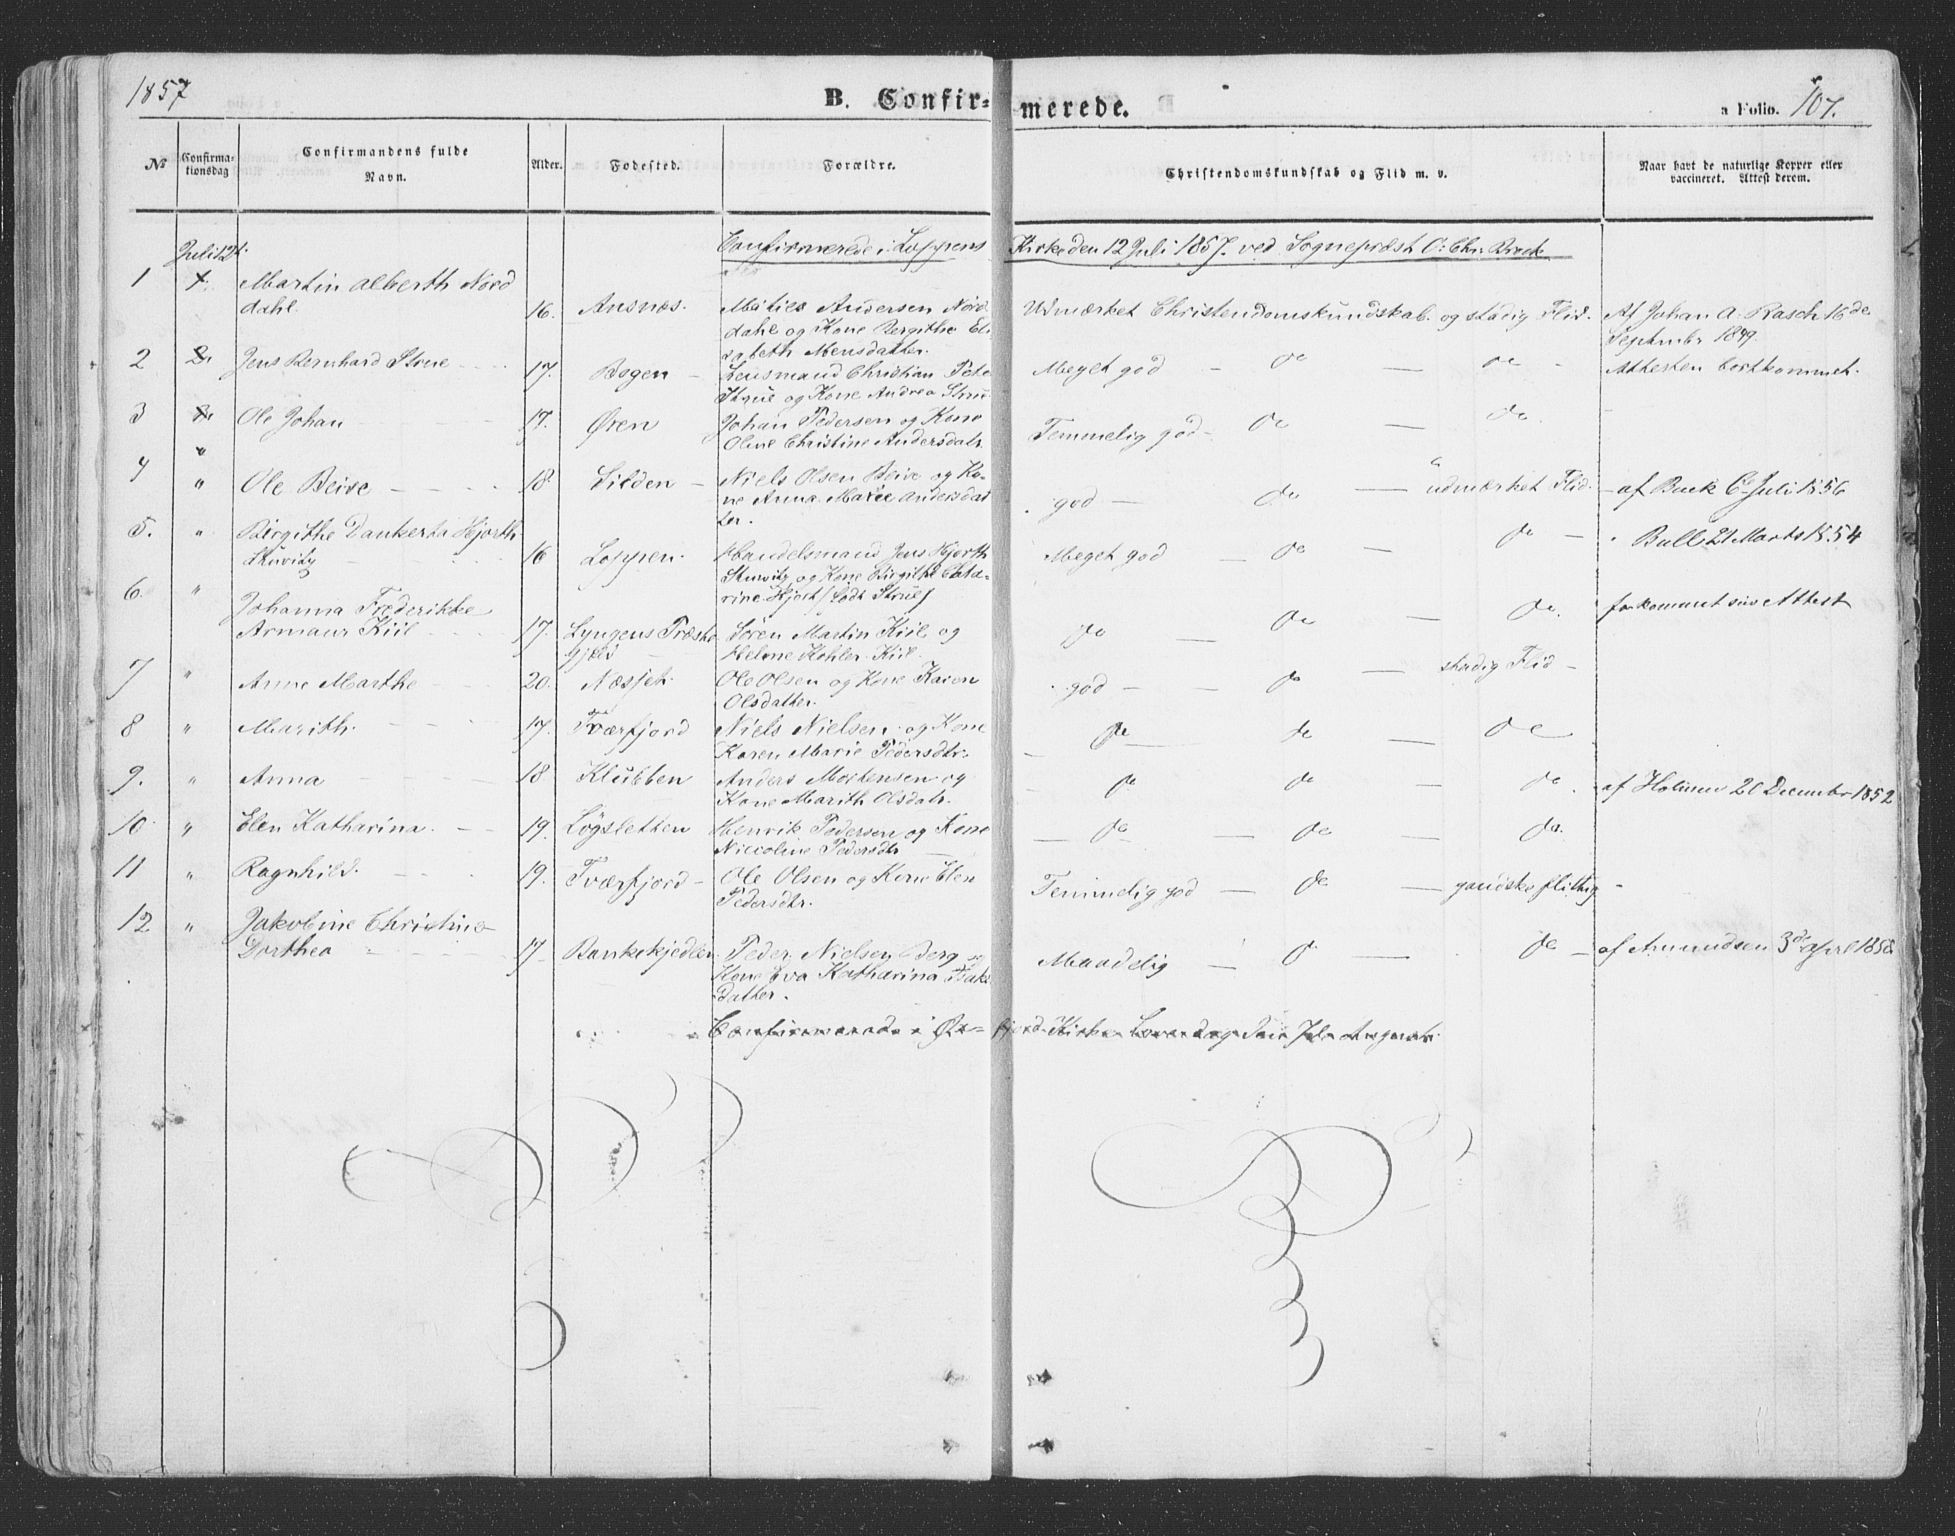 1857
B. Confir- merede.
a Folio. 107.
No
Confirma-
tionsdag
Confirmandens fulde
Navn.
Alder.
Fødested.
Forældre.
Christendomskundskab og Flid m. v.
Naar havt de naturlige Kopper eller
vaccineret. Attest derom.
Juli 12t.
Confirmerede i Loppens Kirke den 12 Juli 1857 ved Sognepræst O: Chr.
1 Martin Alberth Nord
dahl. 16. Ansnæs. Mathies Andersen Nord
dahl og Kone Bergithe El
sabeth Mensdatter. Udmærket Christendomskundskab og stadig Flid. Af Johan A. Rasch 16de
September 1849.
2 Jens Bernhard Strue 17. Bogen Lensmand Christian Pete
Strue og Kone Andrea Strue Meget god do do Attesten bortkommet.
3 Ole Johan 17. Øren Johan Pedersen og Kone
Oline Christine Andersdatr Temmelig god do do
4 " Ole Beive 18 Silden Niels Olsen Beive og Ko-
ne Anna Marie Andersdat
ter. god do udmærket Flid. af Buck 6 Juli 1856
5. " Birgithe Dankerta Hjorth
Sturvitz 16 Loppen. Handelsmand Jens Hjorth
Sturvitz og Kone Birgithe Catha-
rine Hjort f Lødt Strue Meget god do do Ball 21 Marts 1854
6. " Johanna Frederikke
Armaur Kiil 17. Lyngens Præste
gjeld Søren Martin Kiil og
Helene Kohler Kiil. do do do forkommet sin Attest
7 " Anne Marthe 20. Næsjet. Ole Olsen og Kone Karen
Olsdatter. god do stadig Flid
8 " Marith. 17. Tværfjord Niels Nielsen og Kone
Karen Marie Pedersdtr. do do do
9. " Anna 18 Klubben Anders Mortensen og
Kone Marith Olsdatr. do do do af Holmen 20 December 1852
10. " Elen Katharina. 19. Løgsletten Henrik Pedersen og Kone
Niccoline Pedersdtr do do do.
11 " Ragnhild. 19. Tværfjord Ole Olsen og Kone Elen
Pedersdtr. Temmelig god do ganske flittig
12 " Jakobine Christine
Dorthea 17 Bankekjedlen Peder Nielsen Berg og
Kone Eva Katharina Isaks
datter. Maadelig do do af Amundsen 3de April 1858
Confirmerede i Øx- fjord Kirke